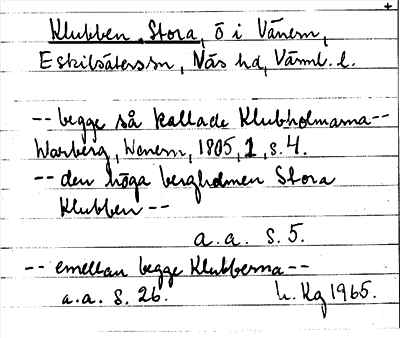 Klubben, Stora, ö i Vänern,
Eskilsäterssn, Näs hd, Värml. l.
-- begge så kallade Klubholmarna --
Warberg, Wenern, 1805, 1, s. 4.
-- den höga bergholmen Stora
Klubben --
a. a. s. 5.
-- emellan begge Klubberna --
a. a. s. 26. h. Kg 1965.